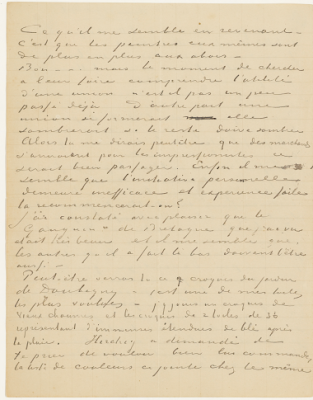 Ce qu'il me semble en revenant -
c'est que les peintres eux mêmes sont
de plus en plus aux abois -
Bon - mais le moment de chercher
à leur faire comprendre l'utilité
d'une union n'est il pas un peu
passé déjà D'autre part une
union si formerait elle
sombrerait si le reste doive sombrer
Alors tu me dirais peut être que des marchands
s'uniraient pour les impressionistes ce
serait bien passager. Enfin il me
semble que l'initiative personnelle
demeure inefficace et expérience faite
la recommencerait-on?
J'ai constaté avec plaisir que le
Gauguin de Bretagne que j'ai vu
était très beau et il me semble que
les autres qu'il a fait là bas doivent l'être
aussi.
Peut être verras tu ce croquis du jardin
de Daubigny - c'est une de mes toiles
les plus voulues - j'y joins un croquis de
vieux chaumes et les croquis de 2 toiles de 30
représentant d'immenses étendues de blé après
la pluie. Hirschig a demandé de
te prier de vouloir bien lui commander
la liste de couleurs ci jointe chez le même